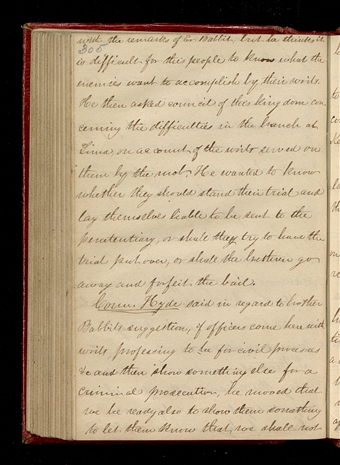 with the remarks of Er Babbit, but he thinks it
305
is difficult for the people to know what the
enemies want to accomplish by their writs.
He then asked council of this kingdom con
cerning the difficulties in the branch at
Lima on account of the writs served on
them by the mob. He wanted to know
whether they should stand their trial and
lay themselves liable to be sent to the
penitentiary, or shall they try to have the
trial put over, or shall the brethren go
away and forfeit the bail.
Coun. Hyde said in regard to brother
Babbits suggestion, if officers come here with
writs professing to be for civil process
&c and then show something else for a
criminal prosecution, he moved that
we be ready also to show them something
to let them know that we shall not